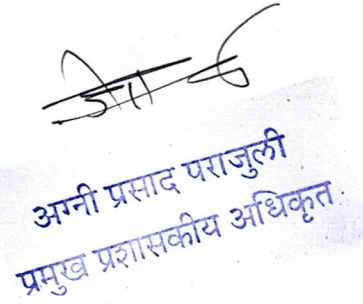 अग्नी प्रसाद पराजुली
प्रमुख प्रशासकीय अधिकृत